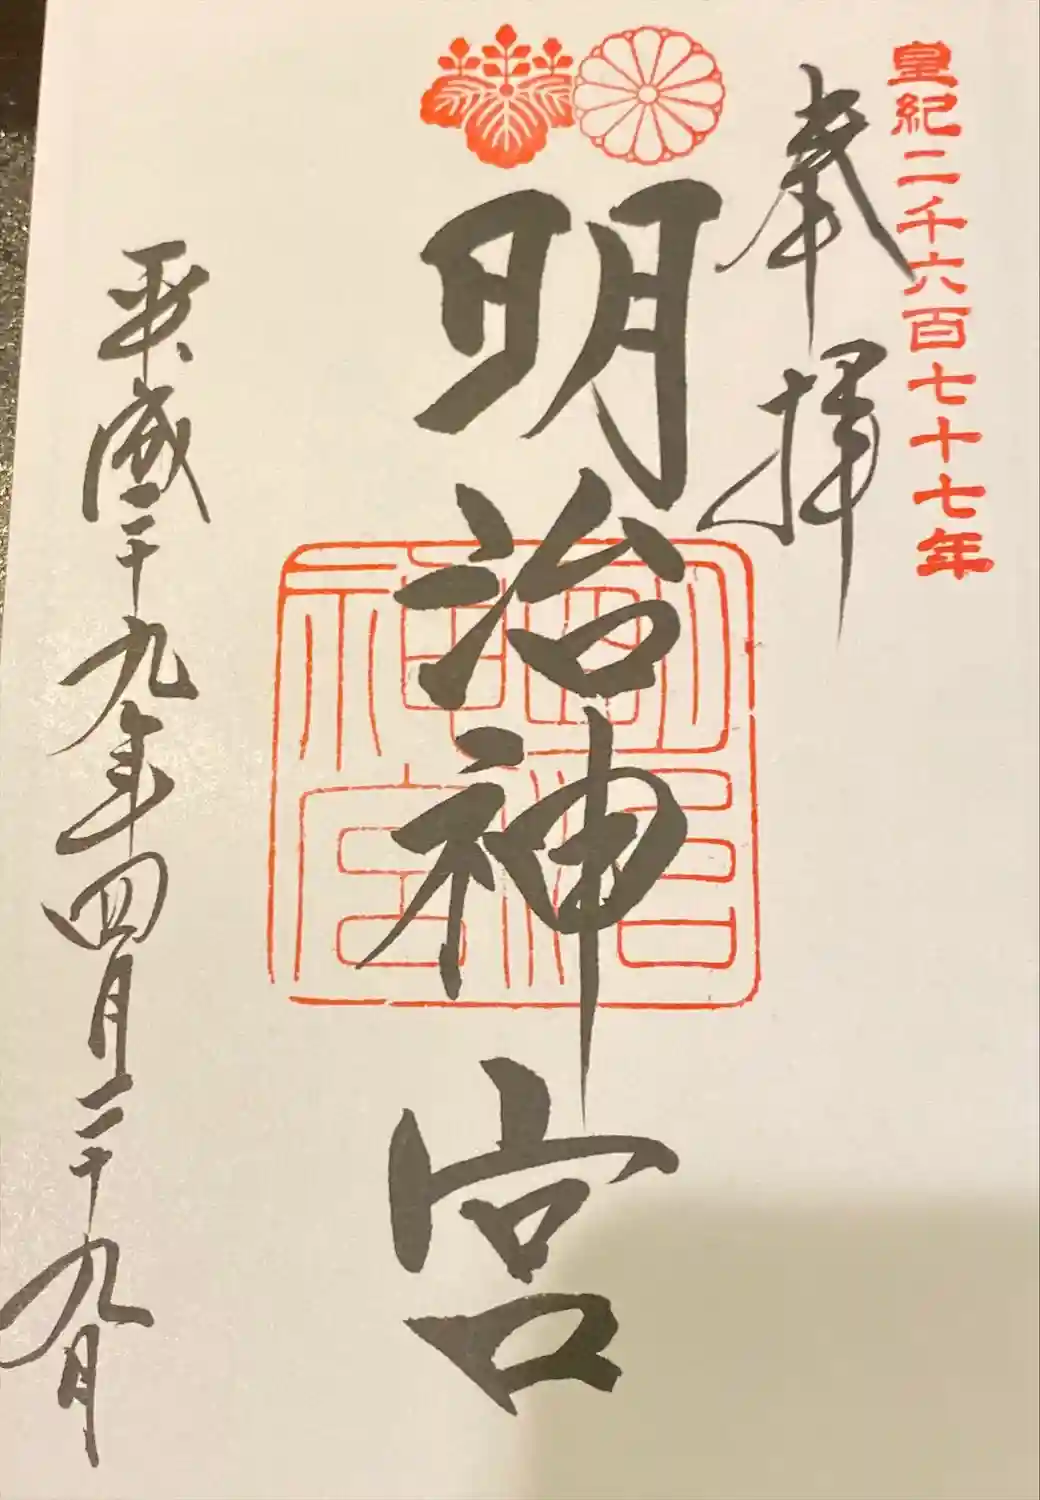 皇紀二千六百七十七年
奉拝
明治神宮
平成二十九年四月二十九日
明治神宮